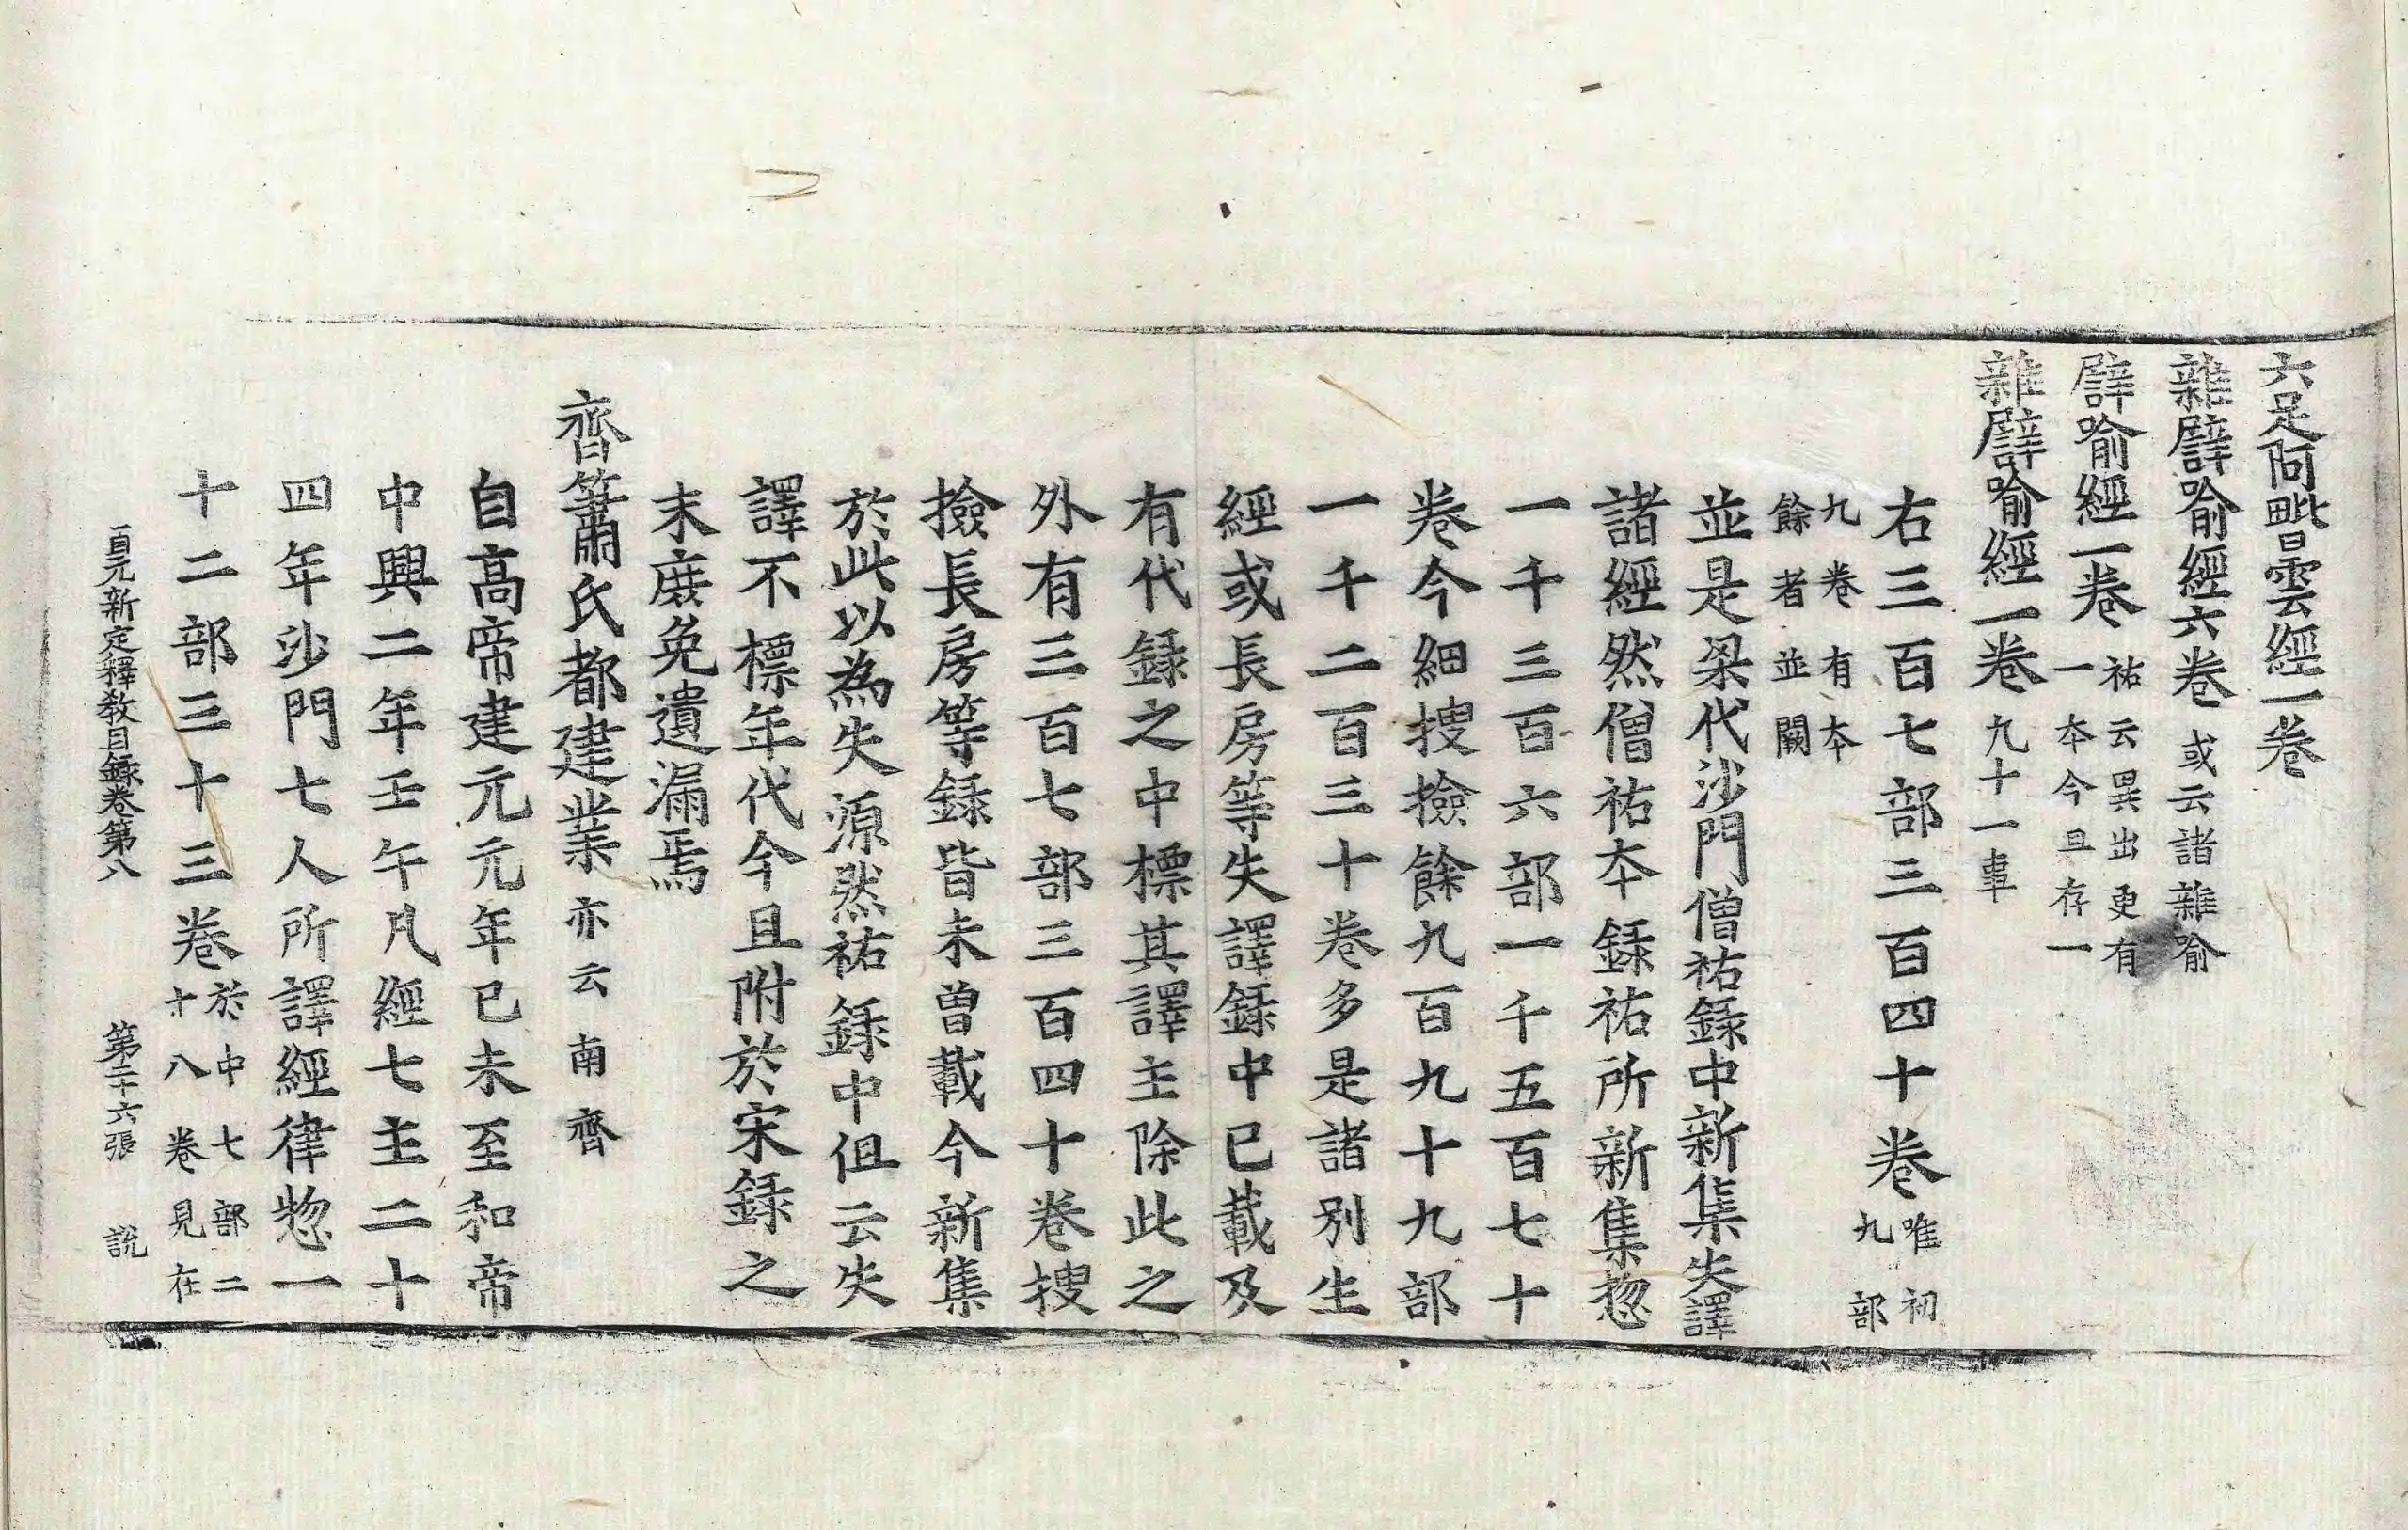 六足阿毗曇經一卷
雜譬喻經六卷 或云諸雜喻
譬喻經一卷 祐云異出更有
一本今且存一
雜譬喻經一卷 九十一事
右三百七部三百四十卷 唯初
九部
九卷有本
餘者並闕
並是梁代沙門僧祐錄中新集失譯
諸經然僧祐本錄祐所新集惣
一千三百六部一千五百七十
卷今細搜撿餘九百九十九部
一千二百三十卷多是諸別生
經或長房等失譯錄中已載及
有代錄之中標其譯主除此之
外有三百七部三百四十卷搜
撿長房等錄皆未曾載今新集
於此以為失源然祐錄中但云失
譯不標年代今且附於宋錄之
末庶免遺漏焉
齊蕭氏都建業 亦云南齊
自高帝建元元年己未至和帝
中興二年壬午凡經七主二十
四年沙門七人所譯經律惣一
十二部三十三卷 於中七部二
十八卷見在
貞元新定釋教目錄卷第八 第二十六張 說